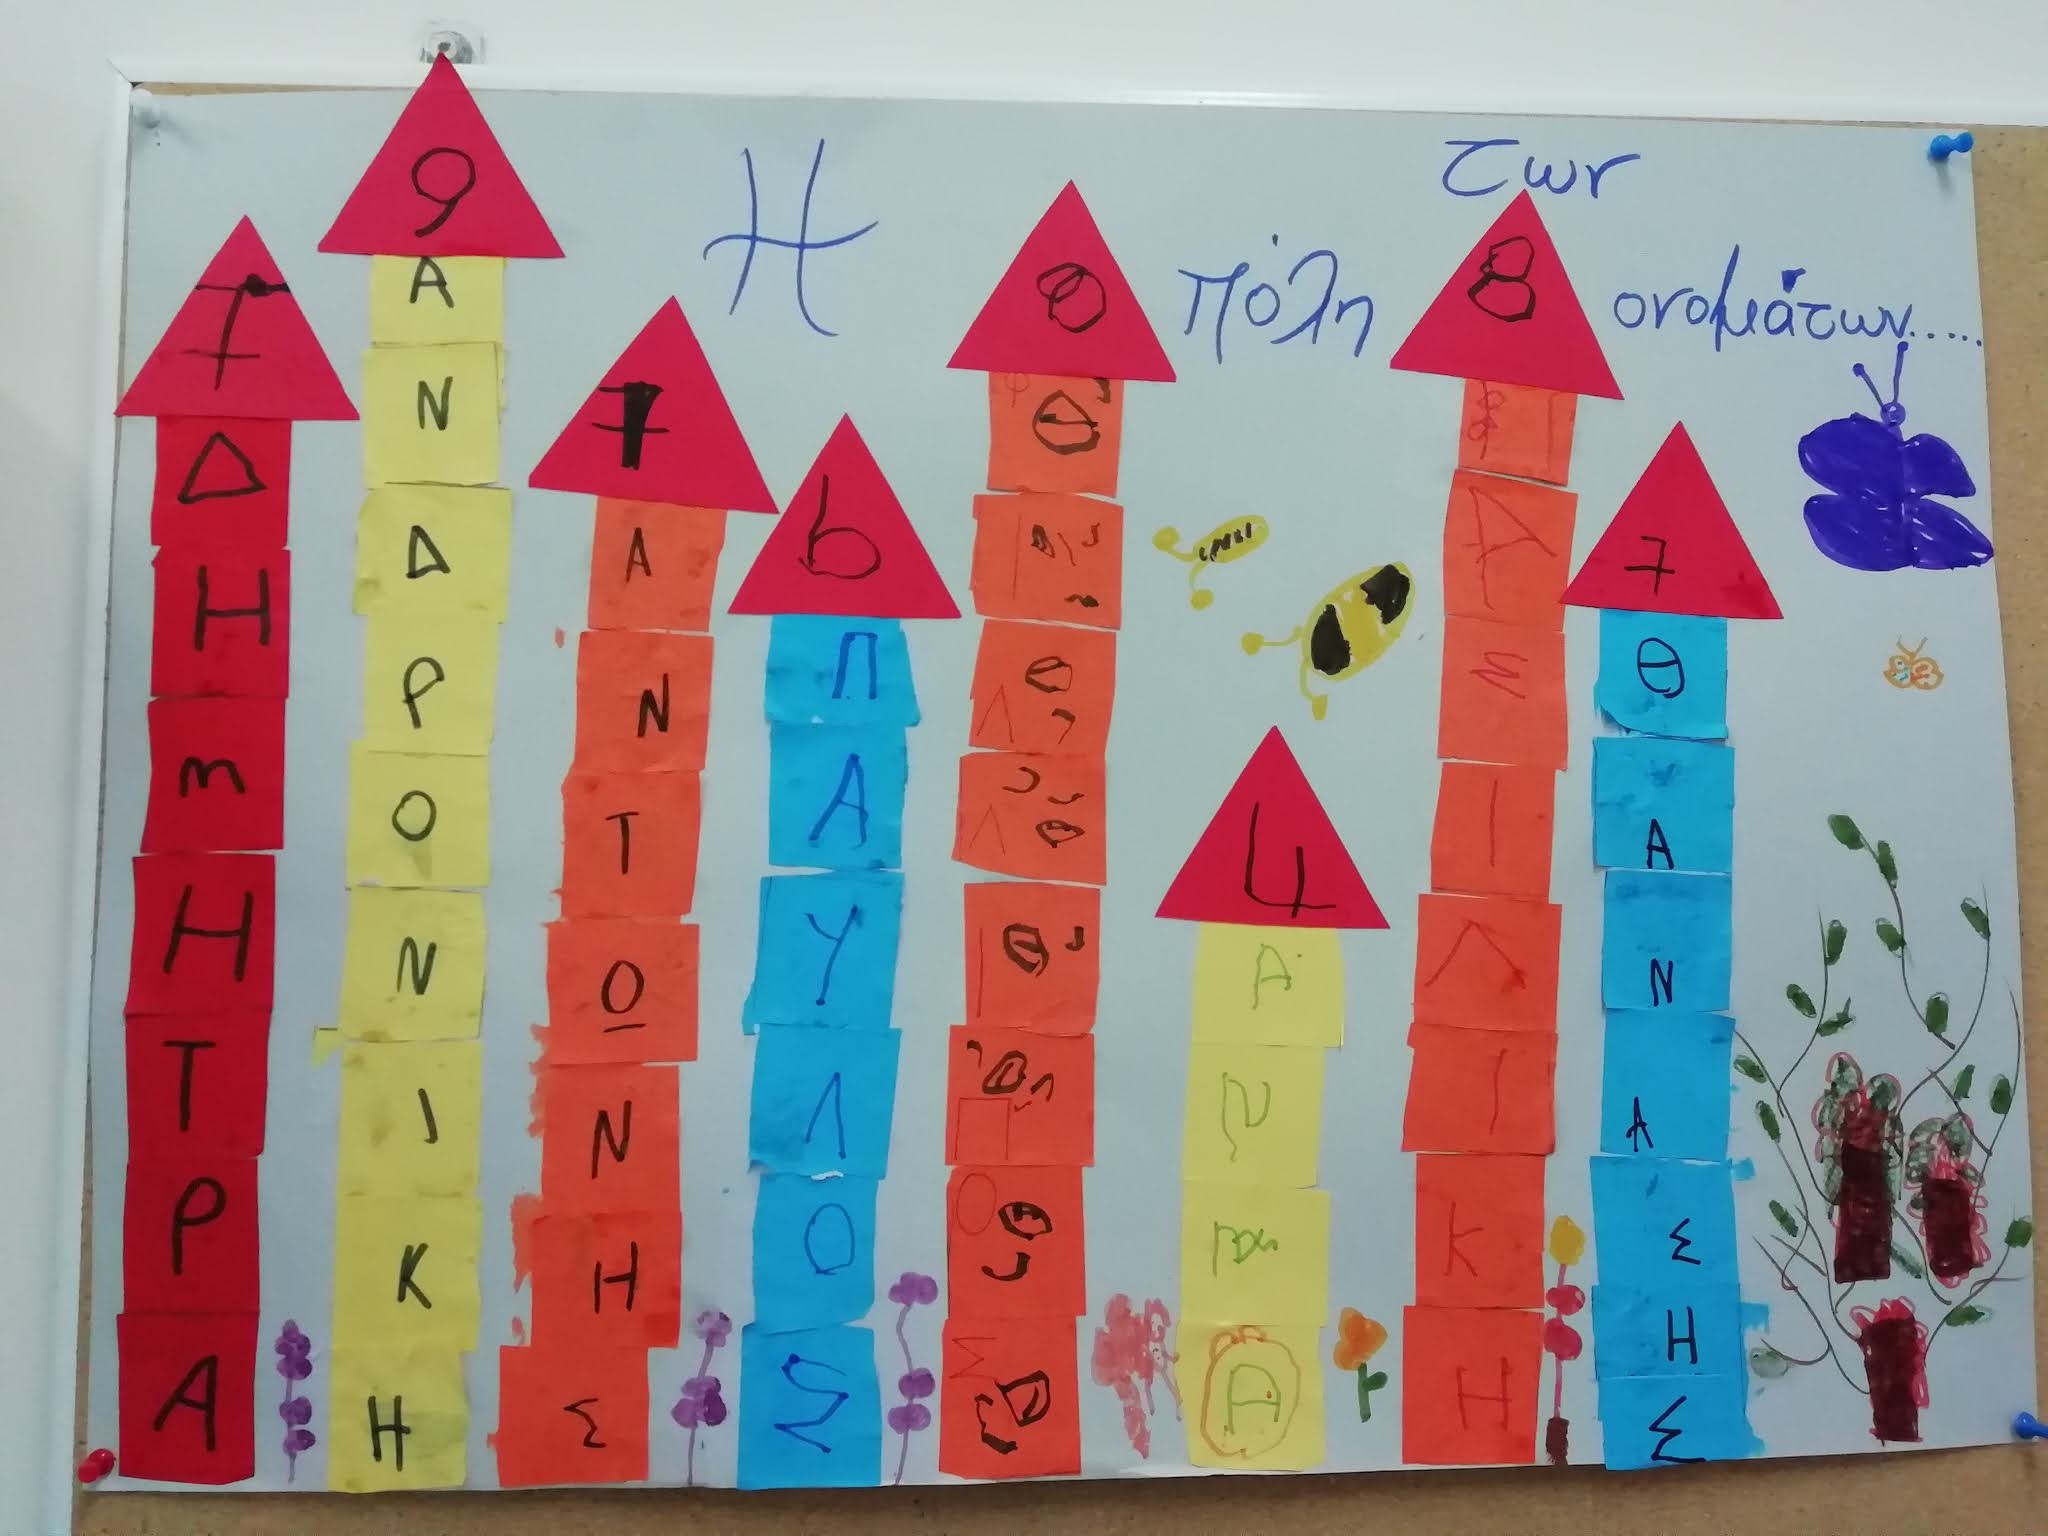 Η πόλη των ονομάτων.....
7
ΔΗmΗΤΡΑ
9
ΑΝΔΡΟΝΙΚΗ
7
ΑΝΤΟΝΗΣ
6
ΠΑΥΛΟΣ
8
4
8
ΒΑΣΙΛΙΚΗ
7
ΘΑΝΑΣΗΣ